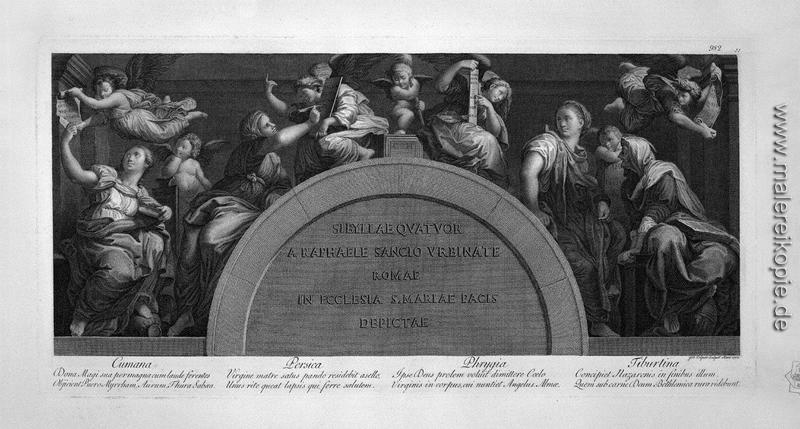 982
21
SIBYLLAE QVATVOR
A RAPHAELE SANCIO VRBINATE
ROMAE
IN ECCLESIA S. MARIAE PACIS
DEPICTAE
Cumana
Dona Magi sua per magna cum laude ferentes
Obficient Puero Myrrham, Aurum, Thura Sabæa.
Persica
Virgine matre satus pando residebit asello,
Unus rite queat lapsis qui ferre salutem.
Phrygia
Ipse Deus prolem voluit dimittere Cœlo
Virginis in corpus, cui nuntiet Angelus Almæ.
Tiburtina
Concipiet Nazarenis in finibus illum,
Quem sub carne Deum Bethlemica rura videbunt.
www.malereikopie.de